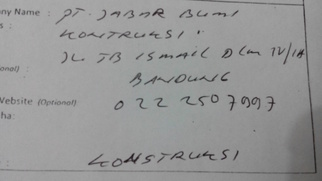 ny Name : PT. JABAR BUMI
s : KONSTRUKSI
JL TB ISMAIL DLM IV/1A
onal) : BANDUNG
Website (Optional): 022 2507997
ha:
KONSTRUKSI